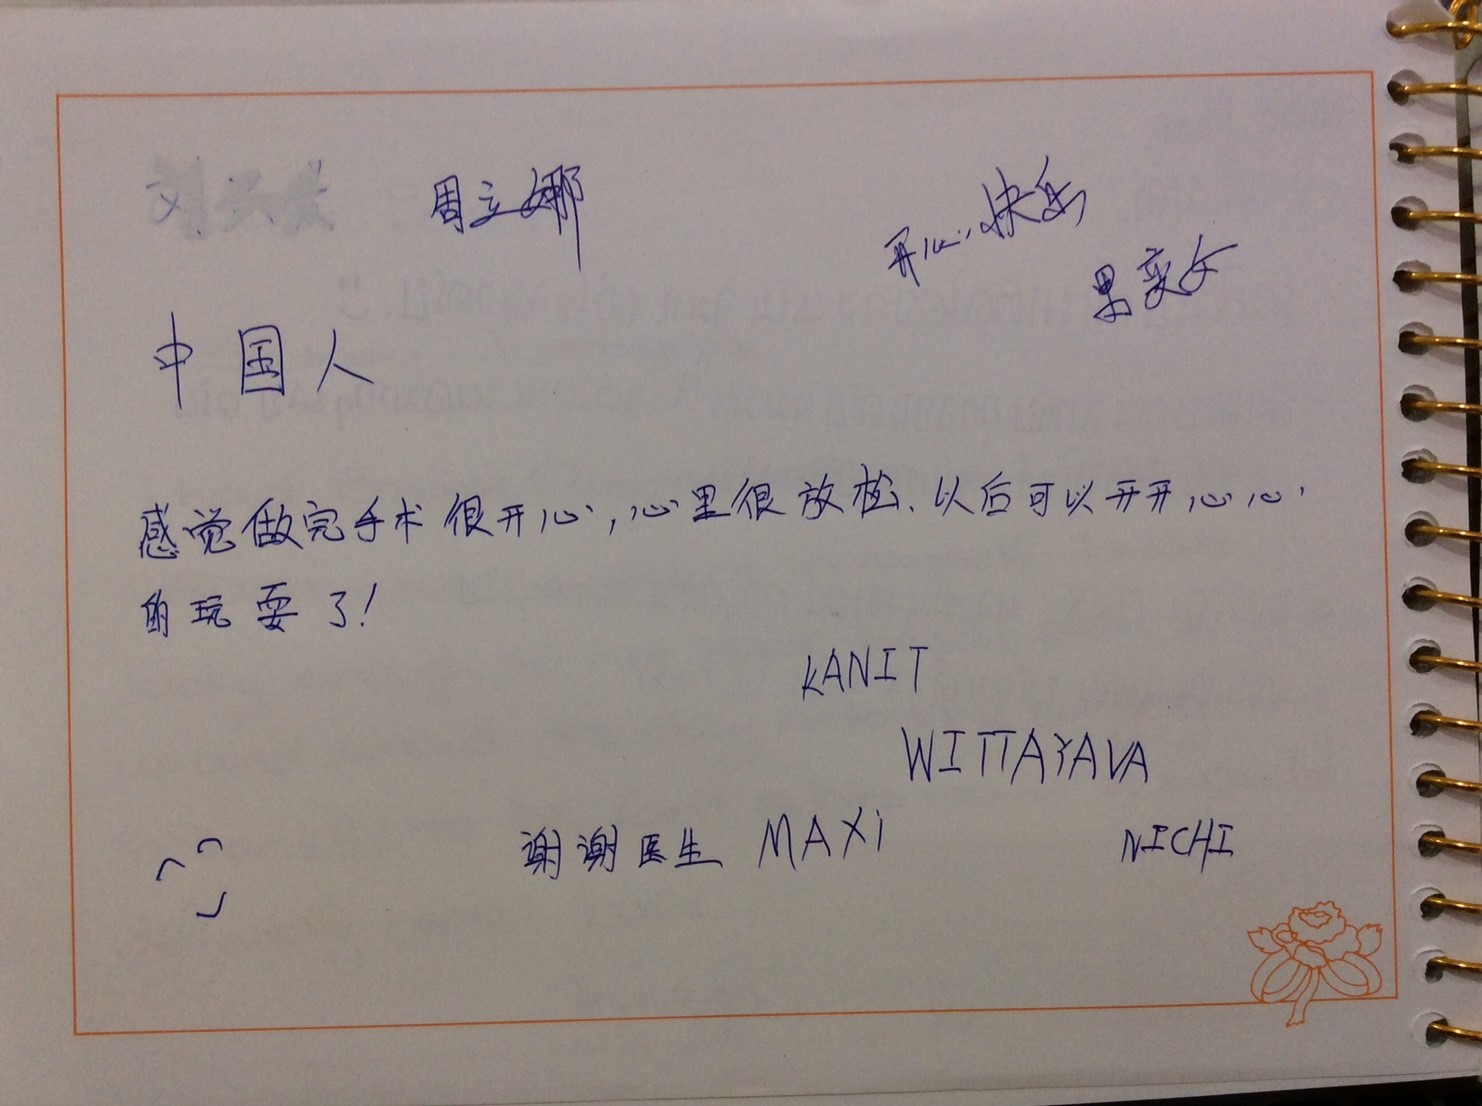 周立娜
开心快乐
男变女
中国人
感觉做完手术很开心,心里很放松、以后可以开开心心
的玩耍了!
KANIT
WITTAYAVA
谢谢医生 MAXi
NICHI